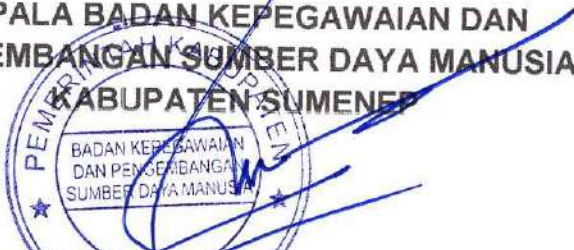 PALA BADAN KEPEGAWAIAN DAN
EMBANGAN SUMBER DAYA MANUSIA
KABUPATEN SUMENEP
PEMERINTAH KABUPATEN
BADAN KEPEGAWAIAN
DAN PENGEMBANGAN
SUMBER DAYA MANUSIA